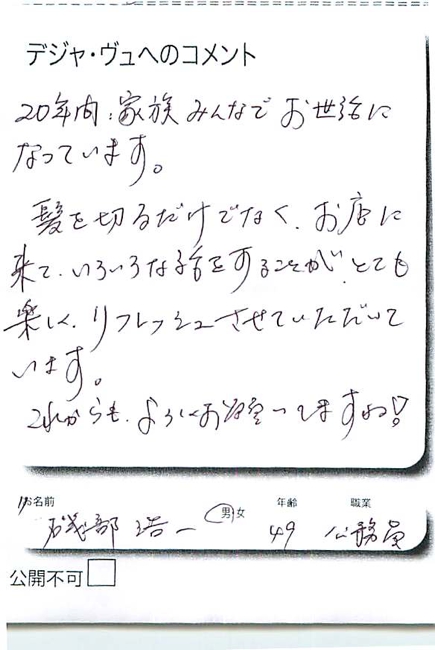 デジャ・ヴュへのコメント
20年間、家族みんなでお世話に
なっています。
髪を切るだけでなく、お店に
来て、いろいろな話をすることが、とても
楽しく、リフレッシュさせていただいて
います。
これからも、よろしくお願いしますね!
お名前
男 女
年齢
職業
磯部 浩一
49
公務員
公開不可